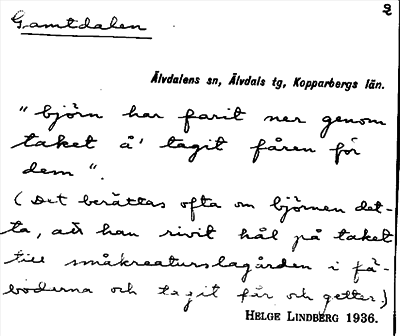 2
Gamtdalen
Älvdalens sn, Älvdals tg, Kopparbergs län.
"björn har farit ner genom
taket å' tagit fåren för
dem".
(Det berättas ofta om björnen det-
ta, att han rivit hål på taket
till småkreaturslagården i fä-
boderna och tagit får och getter.)
HELGE LINDBERG 1936.